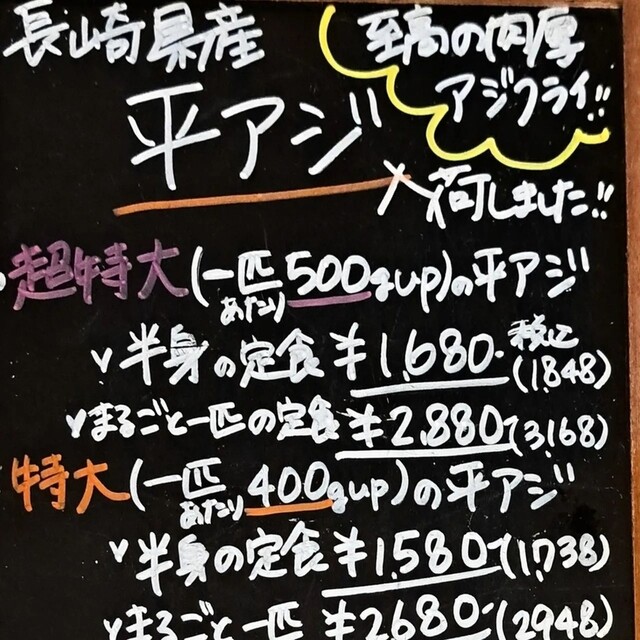 長崎県産
至高の肉厚
アジフライ!!
平アジ
入荷しました!!
超特大(一匹あたり500gup)の平アジ
✓半身の定食 ¥1,680.- 税込(1,848)
✓まるごと一匹の定食 ¥2,880.-(3,168)
特大(一匹あたり400gup)の平アジ
✓半身の定食 ¥1,580.-(1,738)
✓まるごと一匹 ¥2680.-(2948)